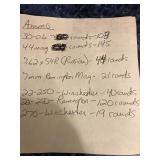 Ammo
30-06 rounds-109
44 mag rounds-145
762x54R (Russian) 44 rounds
7mm Remington Mag - 21 rounds
22-250 - Winchester - 40 rounds
Remington - 120 rounds
270 - Winchester - 19 rounds